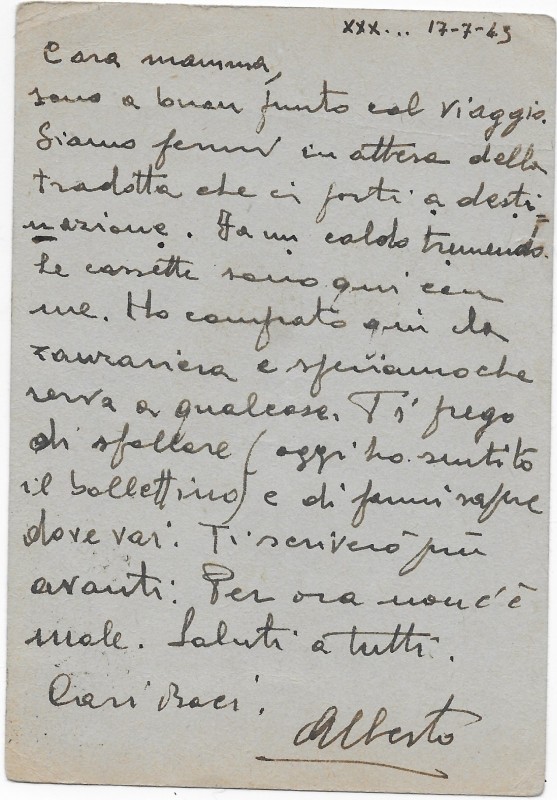 xxx... 17-7-43
Cara mamma,
sono a buon punto col viaggio.
Siamo fermi in attesa della
tradotta che ci porti a desti=
nazione. Fa un caldo tremendo.
Le cassette sono qui con
me. Ho comprato qui la
zanzariera e speriamo che
serva a qualcosa. Ti prego
di sfollare (oggi ho sentito
il bollettino) e di farmi sapre
dove vai. Ti scriverò più
avanti. Per ora non c'è
male. Saluti a tutti.
Cari baci.
Alberto